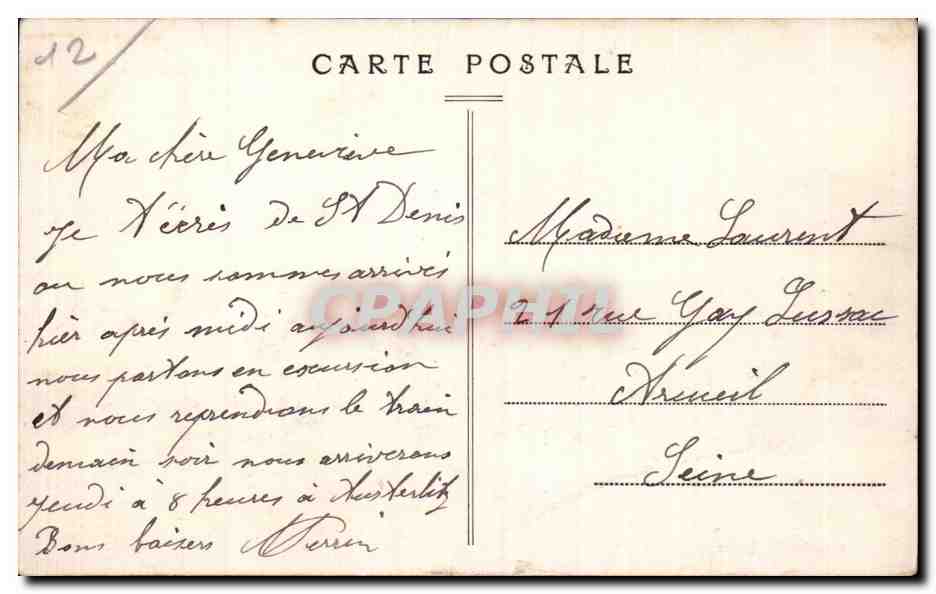 12
CARTE POSTALE
Ma chère Geneviève
je t'écris de St Denis
ou nous sommes arrivés
hier après midi aujourdhui
nous partons en excursion
et nous reprendrons le train
demain soir nous arriverons
jeudi à 8 heures à Austerlitz
Bons baisers Perrin
Madame Laurent
21 rue Gay Lussac
Arcueil
Seine
CPAPHIL